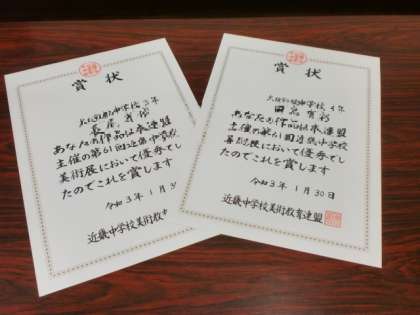 賞状
中学校3年
あなたの作品は本連盟
主催の第61回近畿中学校
美術展において優秀でし
たのでこれを賞します
令和3年1月3
近畿中学校美術教
賞状
中学校
あなたの作品は本連盟
主催の第61回近畿中学校
美術展において優秀でし
たのでこれを賞します
令和3年1月30日
近畿中学校美術教育連盟